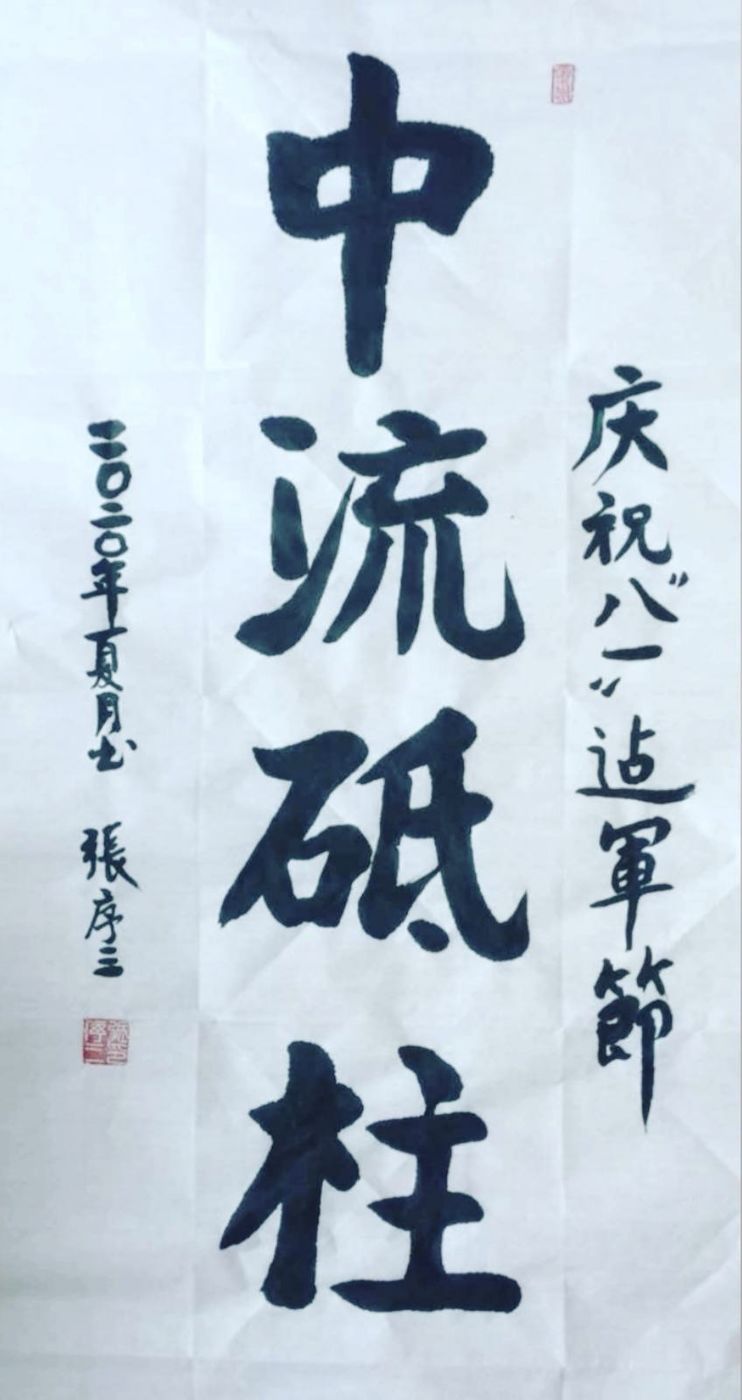 庆祝“八一”迠軍節
中流砥柱
二〇二〇年夏月书 張序三